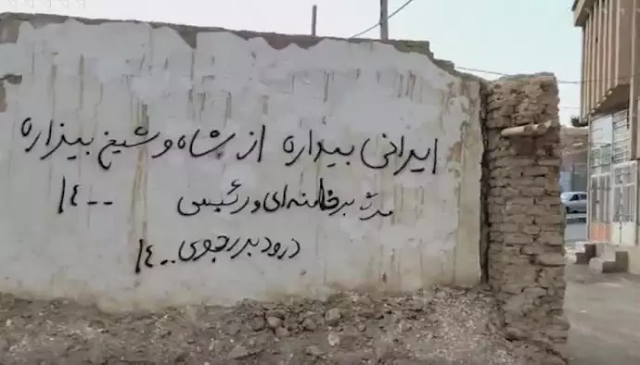 ایرانی بیداره از شاه و شیخ بیزاره
مرگ بر خامنه‌ای و رئیسی ۱۴۰۰
درود بر رجوی ۱۴۰۰